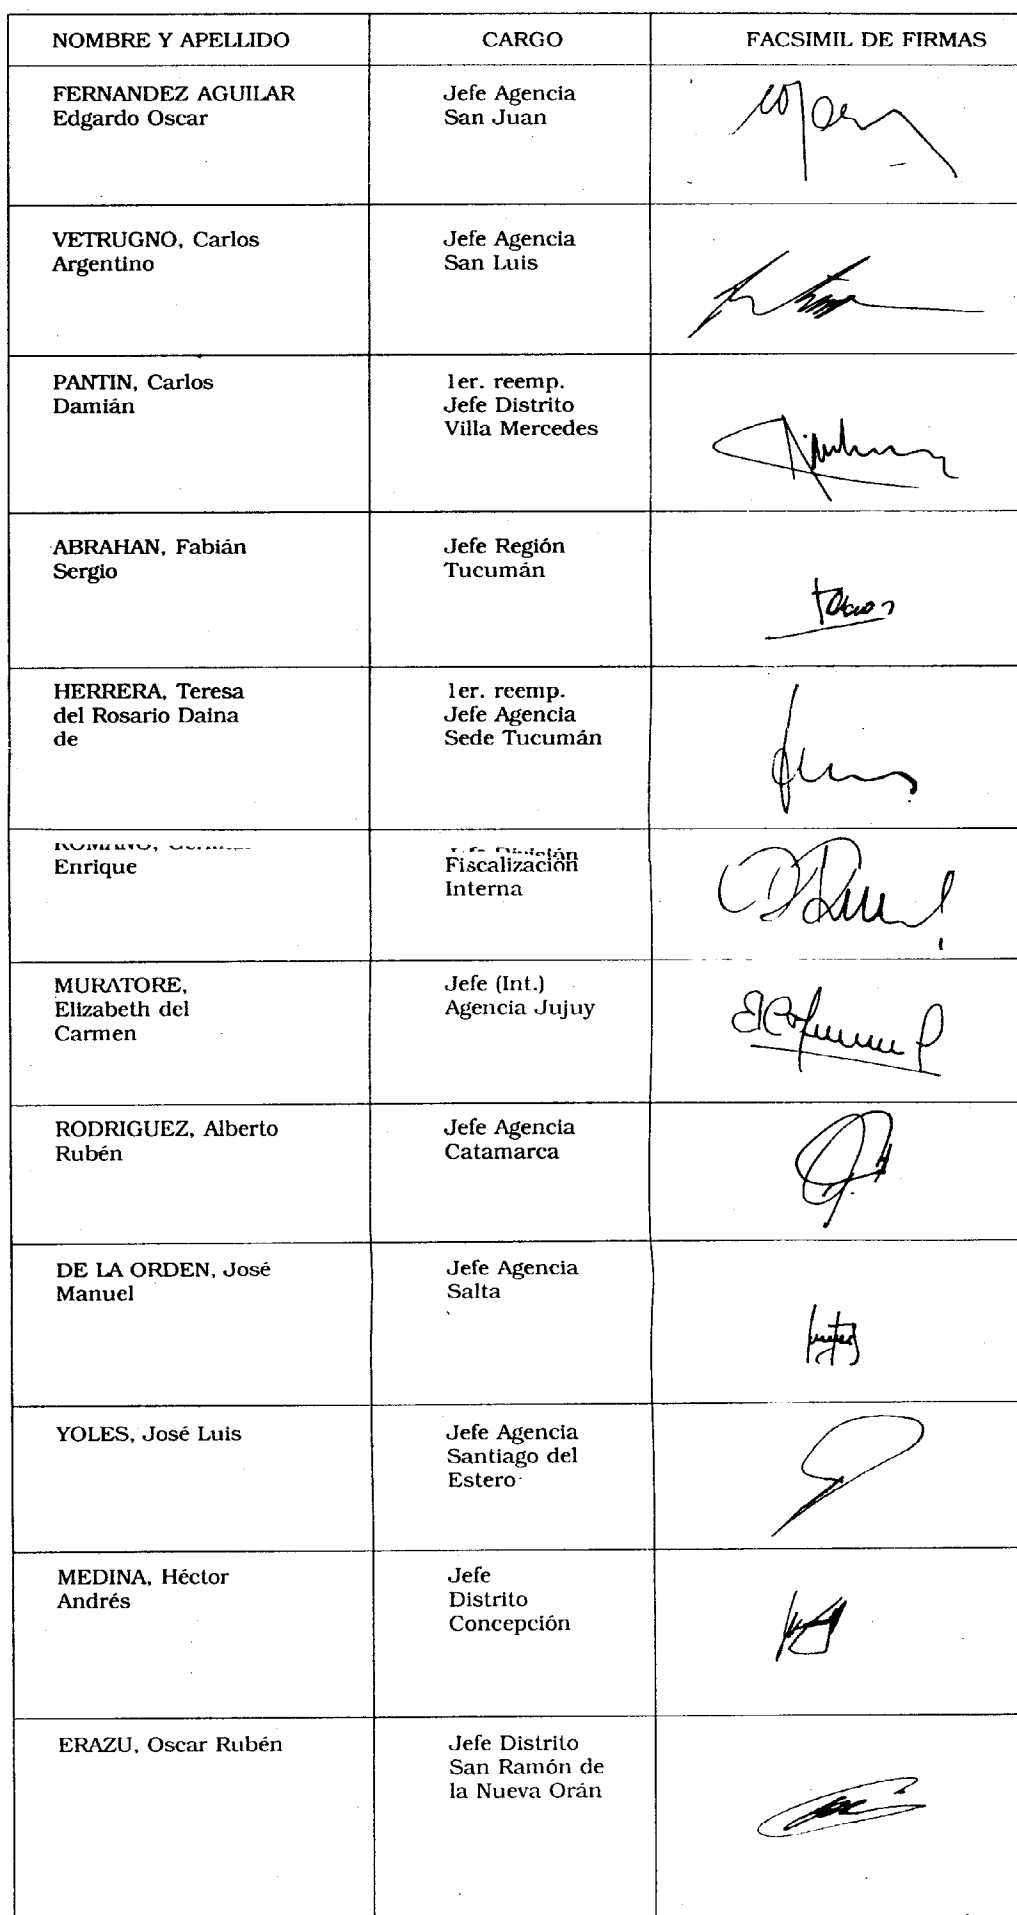 NOMBRE Y APELLIDO
CARGO
FACSIMIL DE FIRMAS
FERNANDEZ AGUILAR
Edgardo Oscar
Jefe Agencia
San Juan
VETRUGNO, Carlos
Argentino
Jefe Agencia
San Luis
PANTIN, Carlos
Damián
1er. reemp.
Jefe Distrito
Villa Mercedes
ABRAHAN, Fabián
Sergio
Jefe Región
Tucumán
HERRERA, Teresa
del Rosario Daina
de
1er. reemp.
Jefe Agencia
Sede Tucumán
ROMANO,
Enrique
Jefe División
Fiscalización
Interna
MURATORE,
Elizabeth del
Carmen
Jefe (Int.)
Agencia Jujuy
RODRIGUEZ, Alberto
Rubén
Jefe Agencia
Catamarca
DE LA ORDEN, José
Manuel
Jefe Agencia
Salta
YOLES, José Luis
Jefe Agencia
Santiago del
Estero
MEDINA, Héctor
Andrés
Jefe
Distrito
Concepción
ERAZU, Oscar Rubén
Jefe Distrito
San Ramón de
la Nueva Orán